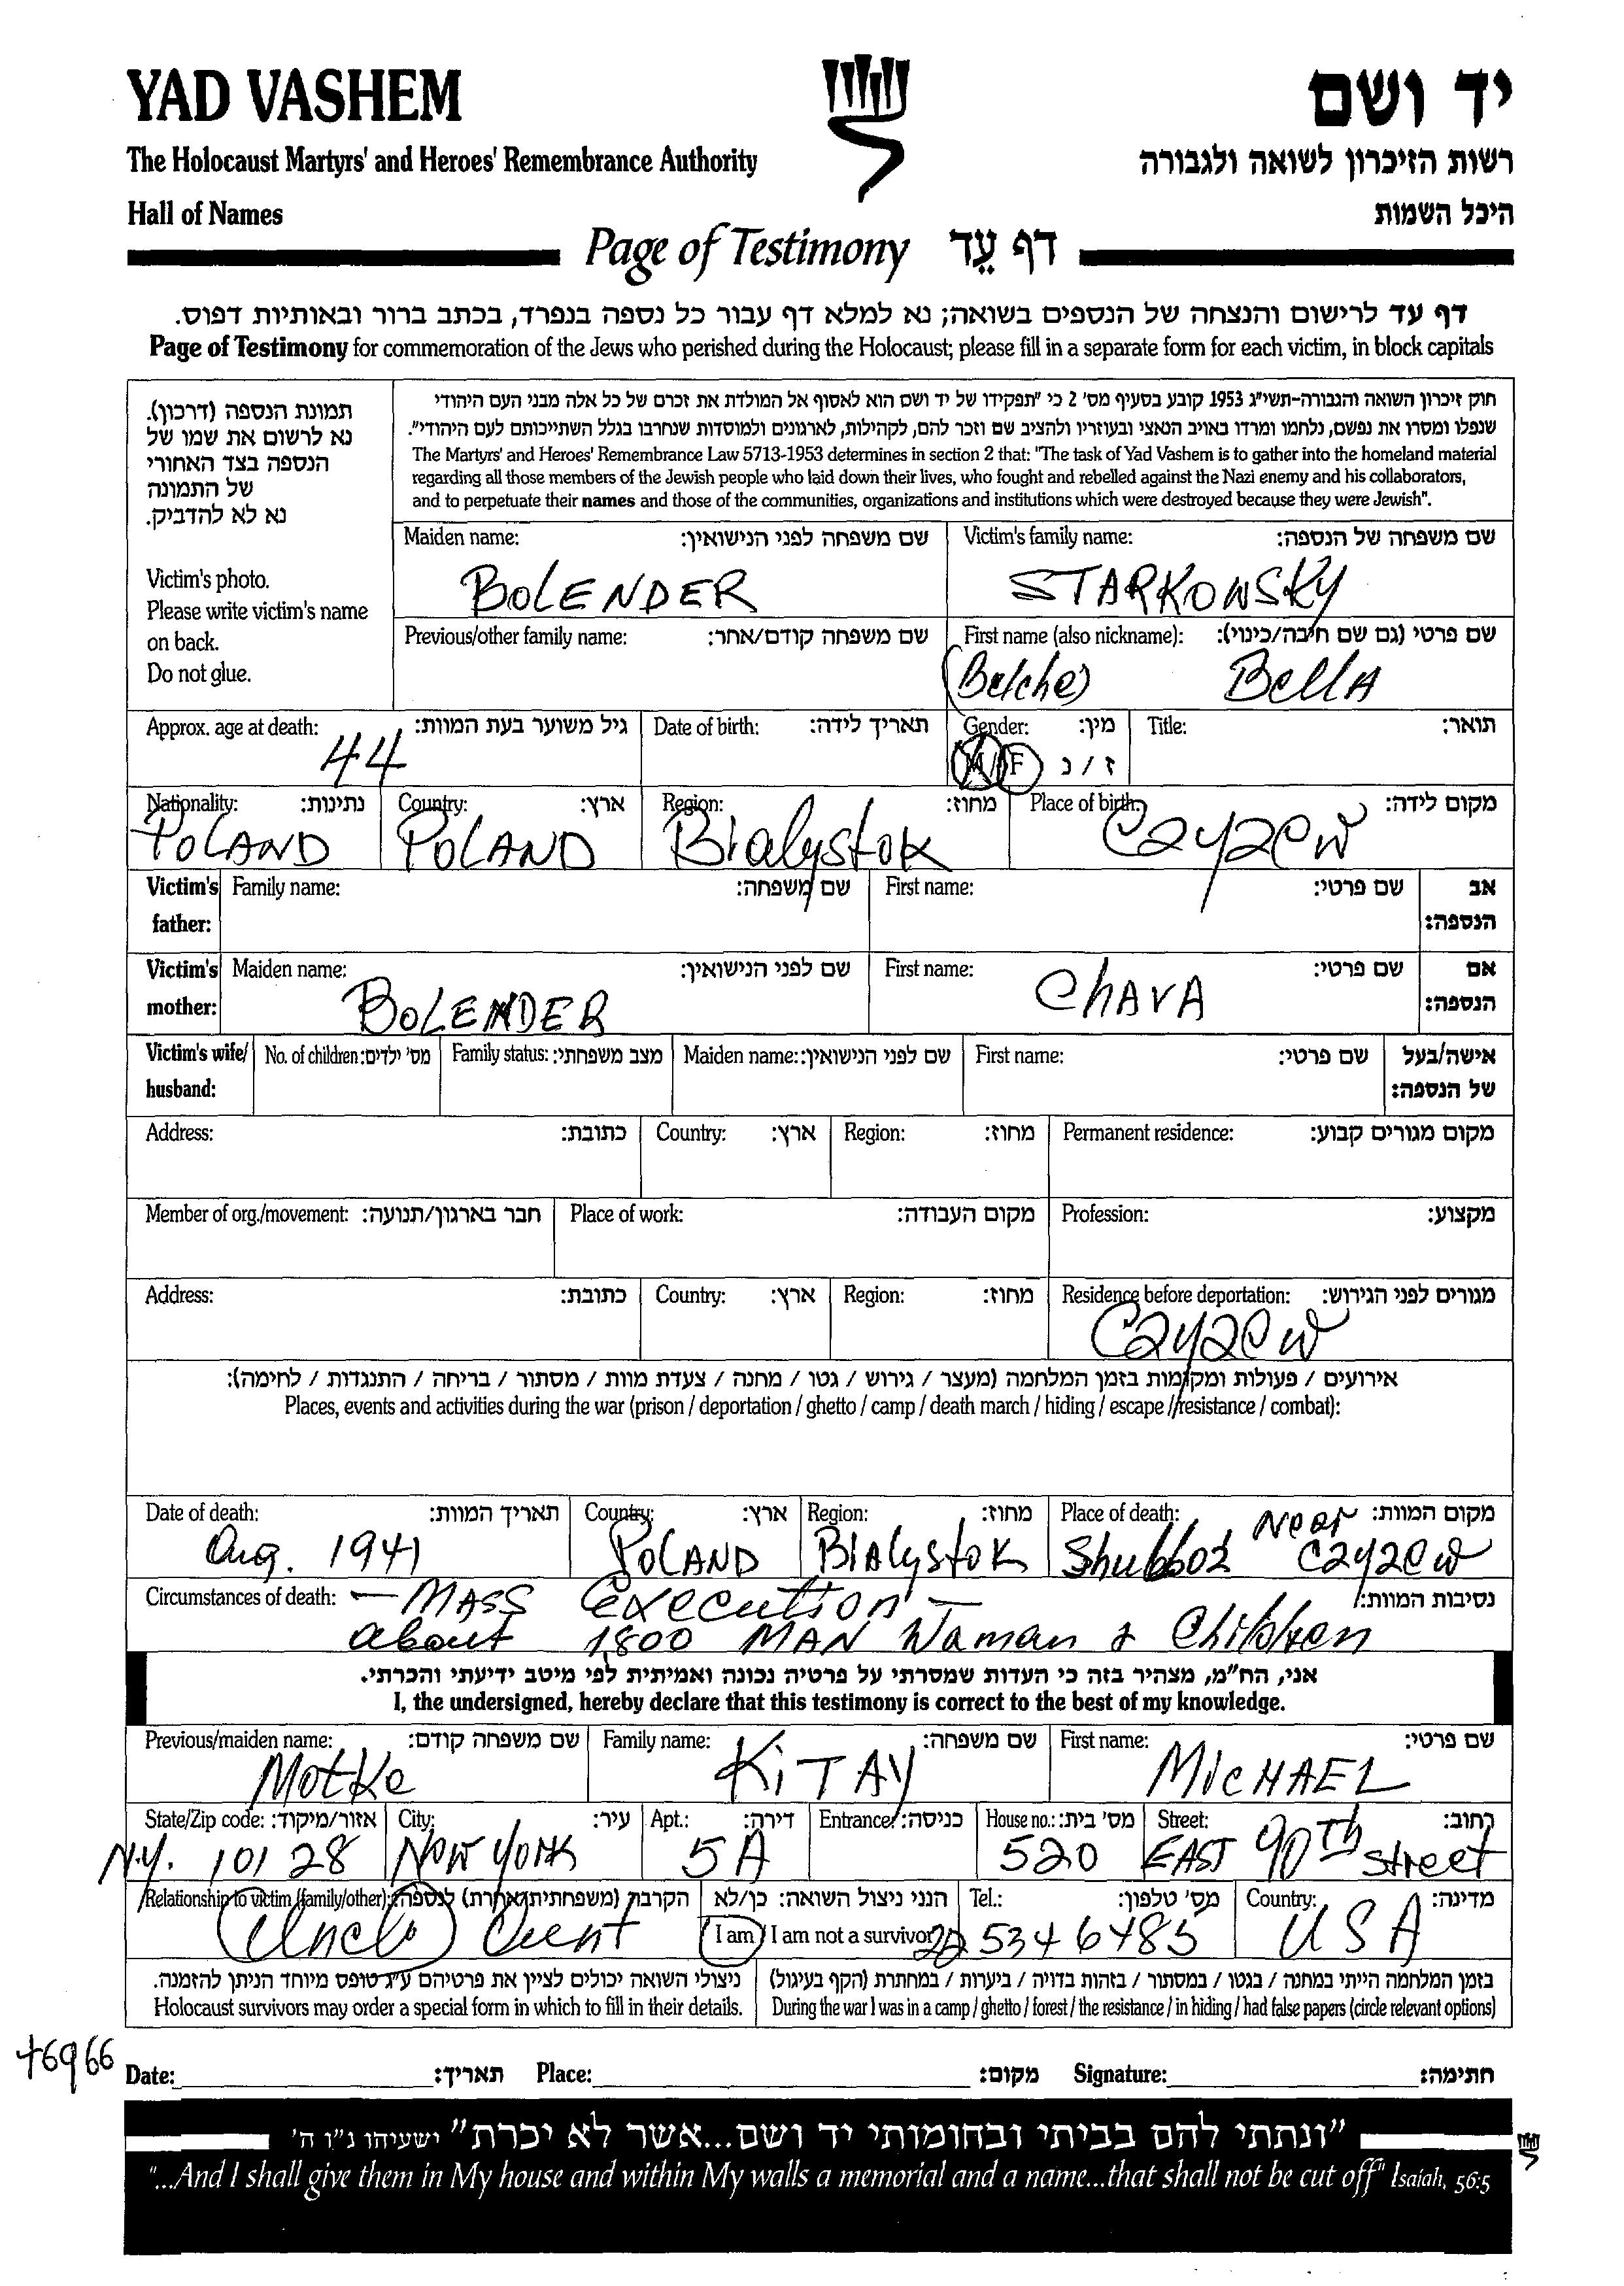 YAD VASHEM
יד ושם
The Holocaust Martyrs' and Heroes' Remembrance Authority
רשות הזיכרון לשואה ולגבורה
Hall of Names
היכל השמות
Page of Testimony דף עֵד
דף עד לרישום והנצחה של הנספים בשואה; נא למלא דף עבור כל נספה בנפרד, בכתב ברור ובאותיות דפוס.
Page of Testimony for commemoration of the Jews who perished during the Holocaust; please fill in a separate form for each victim, in block capitals
תמונת הנספה (דרכון).
נא לרשום את שמו של
הנספה בצד האחורי
של התמונה
נא לא להדביק.
Victim's photo.
Please write victim's name
on back.
Do not glue.
חוק זיכרון השואה והגבורה-תשי"ג 1953 קובע בסעיף מס' 2 כי "תפקידו של יד ושם הוא לאסוף אל המולדת את זכרם של כל אלה מבני העם היהודי
שנפלו ומסרו את נפשם, נלחמו ומרדו באויב הנאצי ובעוזריו ולהציב שם וזכר להם, לקהילות, לארגונים ולמוסדות שנחרבו בגלל השתייכותם לעם היהודי".
The Martyrs' and Heroes' Remembrance Law 5713-1953 determines in section 2 that: "The task of Yad Vashem is to gather into the homeland material
regarding all those members of the Jewish people who laid down their lives, who fought and rebelled against the Nazi enemy and his collaborators,
and to perpetuate their names and those of the communities, organizations and institutions which were destroyed because they were Jewish".
Maiden name: שם משפחה לפני הנישואין: Victim's family name: שם משפחה של הנספה:
BOLENDER STARKOWSKY
Previous/other family name: שם משפחה קודם/אחר: First name (also nickname): שם פרטי (גם שם חיבה/כינוי):
(Belche) BellA
Approx. age at death: גיל משוער בעת המוות: Date of birth: תאריך לידה: Gender: מין: Title: תואר:
44 M/F ז / נ
Nationality: נתינות: Country: ארץ: Region: מחוז: Place of birth: מקום לידה:
POLAND POLAND Bialystok Czyzew
Victim's father: Family name: שם משפחה: First name: שם פרטי: אב הנספה:
Victim's mother: Maiden name: שם לפני הנישואין: First name: שם פרטי: אם הנספה:
BOLENDER CHAVA
Victim's wife/ husband: No. of children: מס' ילדים: Family status: מצב משפחתי: Maiden name: שם לפני הנישואין: First name: שם פרטי: אישה/בעל של הנספה:
Address: כתובת: Country: ארץ: Region: מחוז: Permanent residence: מקום מגורים קבוע:
Member of org./movement: חבר בארגון/תנועה: Place of work: מקום העבודה: Profession: מקצוע:
Address: כתובת: Country: ארץ: Region: מחוז: Residence before deportation: מגורים לפני הגירוש:
Czyzew
אירועים / פעולות ומקומות בזמן המלחמה (מעצר / גירוש / גטו / מחנה / צעדת מוות / מסתור / בריחה / התנגדות / לחימה):
Places, events and activities during the war (prison / deportation / ghetto / camp / death march / hiding / escape / resistance / combat):
Date of death: תאריך המוות: Country: ארץ: Region: מחוז: Place of death: מקום המוות:
Aug. 1941 POLAND BIAlystok Near Czyzew
Circumstances of death: נסיבות המוות:
— MASS Execution —
about 1800 MAN Waman & Children
אני, הח"מ, מצהיר בזה כי העדות שמסרתי על פרטיה נכונה ואמיתית לפי מיטב ידיעתי והכרתי.
I, the undersigned, hereby declare that this testimony is correct to the best of my knowledge.
Previous/maiden name: שם משפחה קודם: Family name: שם משפחה: First name: שם פרטי:
Motke KiTAY MICHAEL
State/Zip code: אזור/מיקוד: City: עיר: Apt.: דירה: Entrance: כניסה: House no.: מס' בית: Street: רחוב:
N.Y. 10128 NOW YORK 5A 520 EAST 90TH street
Relationship to victim (family/other): הקרבה (משפחתית/אחרת) לנספה: הנני ניצול השואה: כן/לא Tel.: מס' טלפון: Country: מדינה:
Uncle I am / I am not a survivor 5346485 USA
ניצולי השואה יכולים לציין את פרטיהם ע"ג טופס מיוחד הניתן להזמנה.
Holocaust survivors may order a special form in which to fill in their details.
בזמן המלחמה הייתי במחנה / בגטו / במסתור / בזהות בדויה / ביערות / במחתרת (הקף בעיגול)
During the war I was in a camp / ghetto / forest / the resistance / in hiding / had false papers (circle relevant options)
46966
Date: תאריך: Place: מקום: Signature: חתימה:
"ונתתי להם בביתי ובחומותי יד ושם...אשר לא יכרת" ישעיהו נ"ו ה'
"...And I shall give them in My house and within My walls a memorial and a name...that shall not be cut off" Isaiah, 56:5